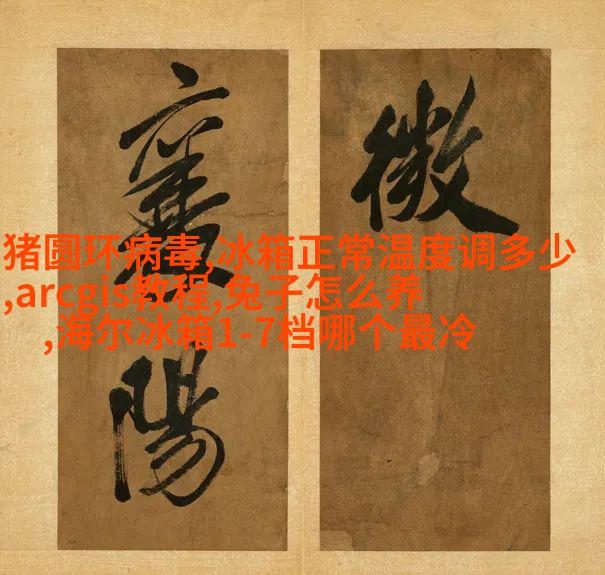 微
襄陽
猪圆环病毒,冰箱正常温度调多少
,arcgis教程,兔子怎么养
,海尔冰箱1-7档哪个最冷